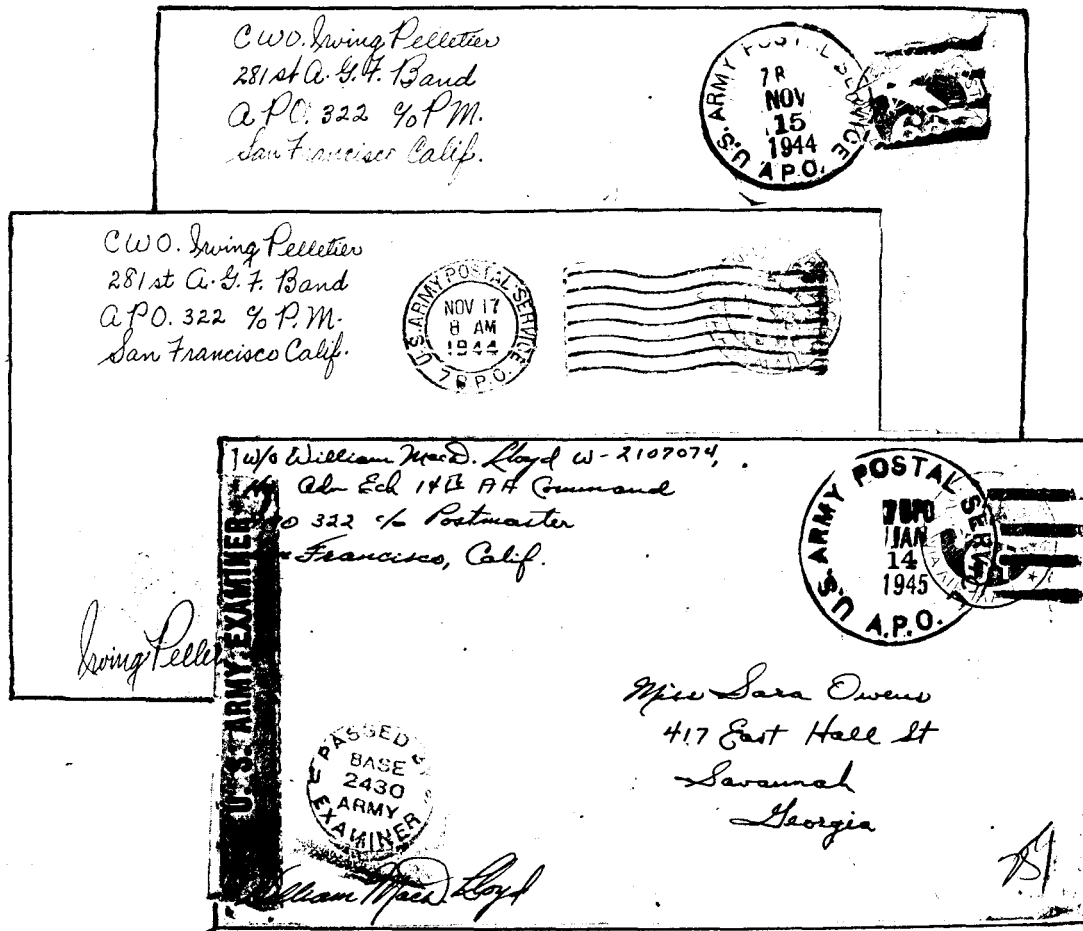 CWO. Irving Pelletier
281st A.G.F. Band
A.P.O. 322 c/o P.M.
San Francisco Calif.
U.S. ARMY POSTAL SERVICE
NOV
15
1944
A.P.O.
CWO. Irving Pelletier
281st A.G.F. Band
A.P.O. 322 c/o P.M.
San Francisco Calif.
U.S. ARMY POSTAL SERVICE
NOV 17
8 AM
1944
P.O.
Irving Pelle
W/O William MacD. Lloyd W-2107074,
Adm Ech 14th AA Command
322 c/o Postmaster
Francisco, Calif.
U.S. ARMY POSTAL
JAN
14
1945
A.P.O.
U.S. ARMY EXAMINER
Miss Sara Owens
417 East Hall St
Savannah
Georgia
PASSED
BASE
2430
ARMY
EXAMINER
William MacD. Lloyd